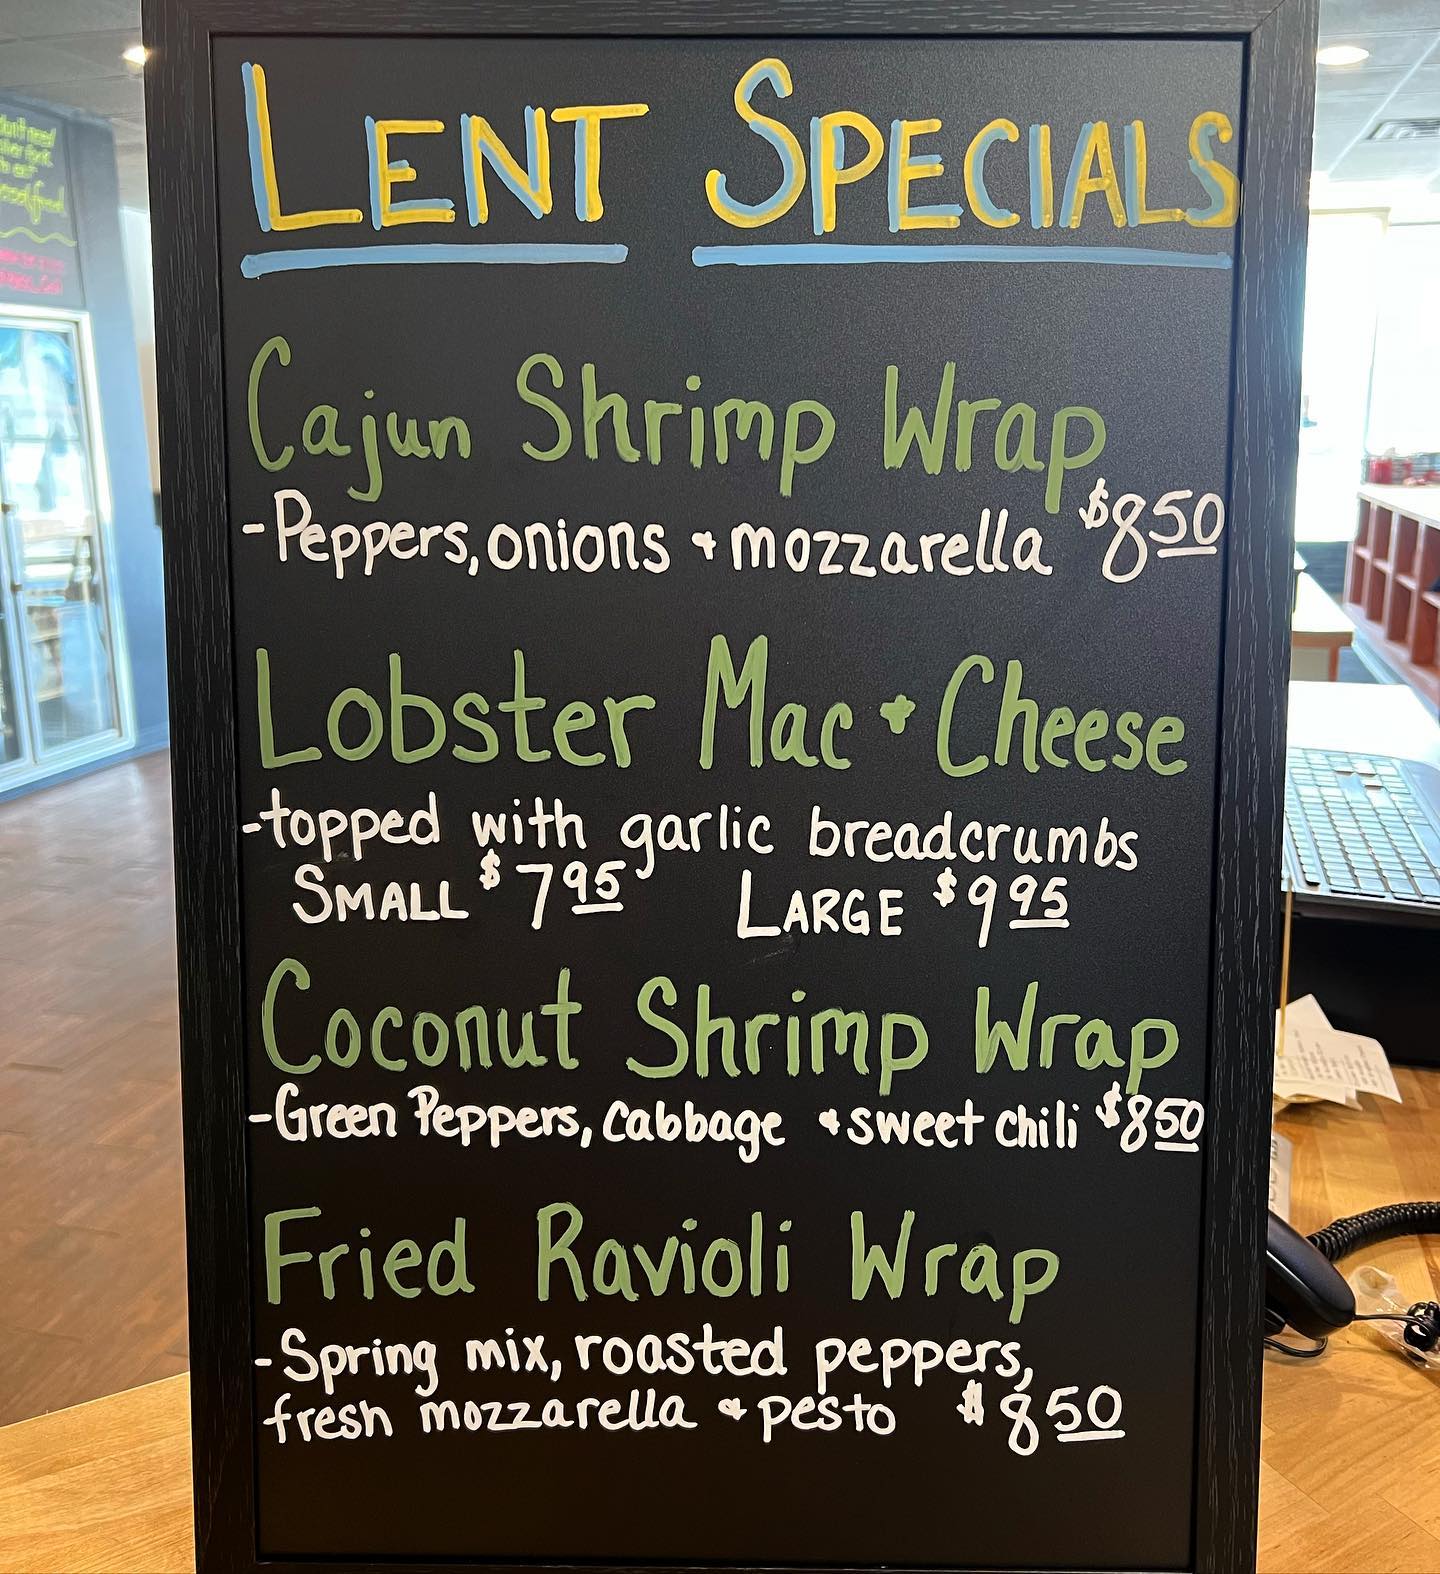 LENT SPECIALS
Cajun Shrimp Wrap
-Peppers, onions + mozzarella $8.50
Lobster Mac + Cheese
-topped with garlic breadcrumbs
SMALL $7.95 LARGE $9.95
Coconut Shrimp Wrap
-Green Peppers, cabbage + sweet chili $8.50
Fried Ravioli Wrap
-Spring mix, roasted peppers,
fresh mozzarella + pesto $8.50